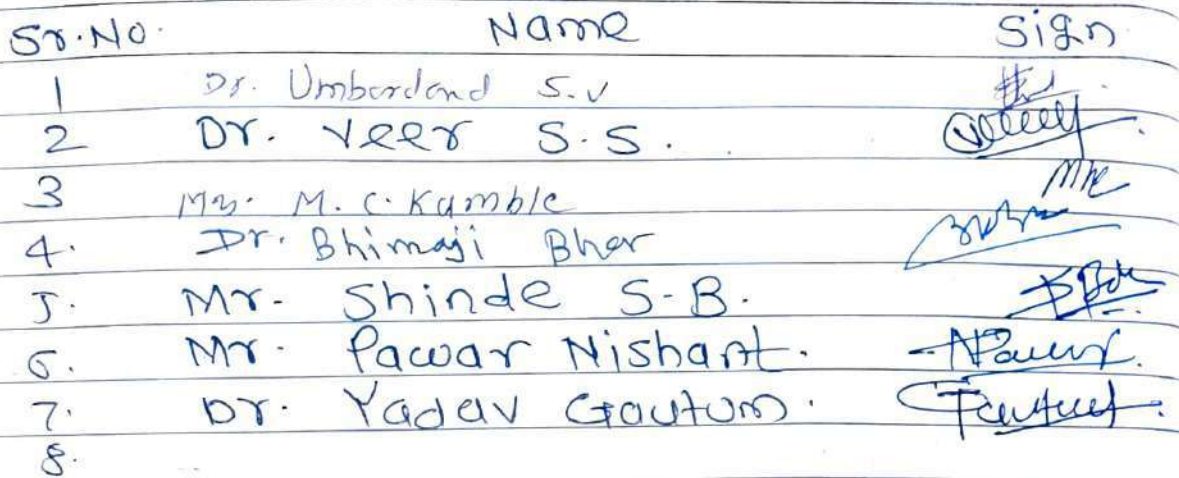 Sr. No. Name Sign
1 Dr. Umbardand S.V
2 Dr. Veer S.S.
3 Mr. M. C. Kamble
4. Dr. Bhimaji Bhor
5. Mr. Shinde S.B.
6. Mr. Pawar Nishant.
7. Dr. Yadav Gautum.
8.